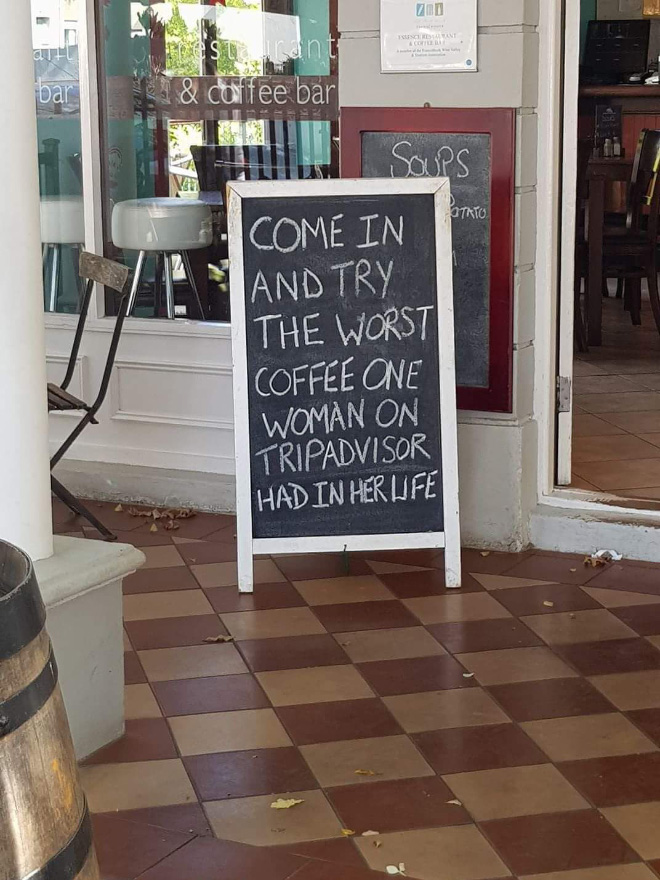 restaurant
bar & coffee bar
ESSENCE RESTAURANT
& COFFEE BAR
SOUPS
POTATO
COME IN
AND TRY
THE WORST
COFFEE ONE
WOMAN ON
TRIPADVISOR
HAD IN HER LIFE